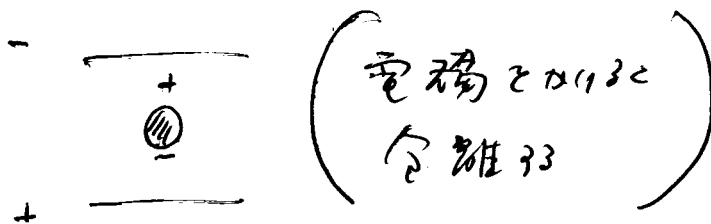 -
+
-
+
電場をかけると
分離する